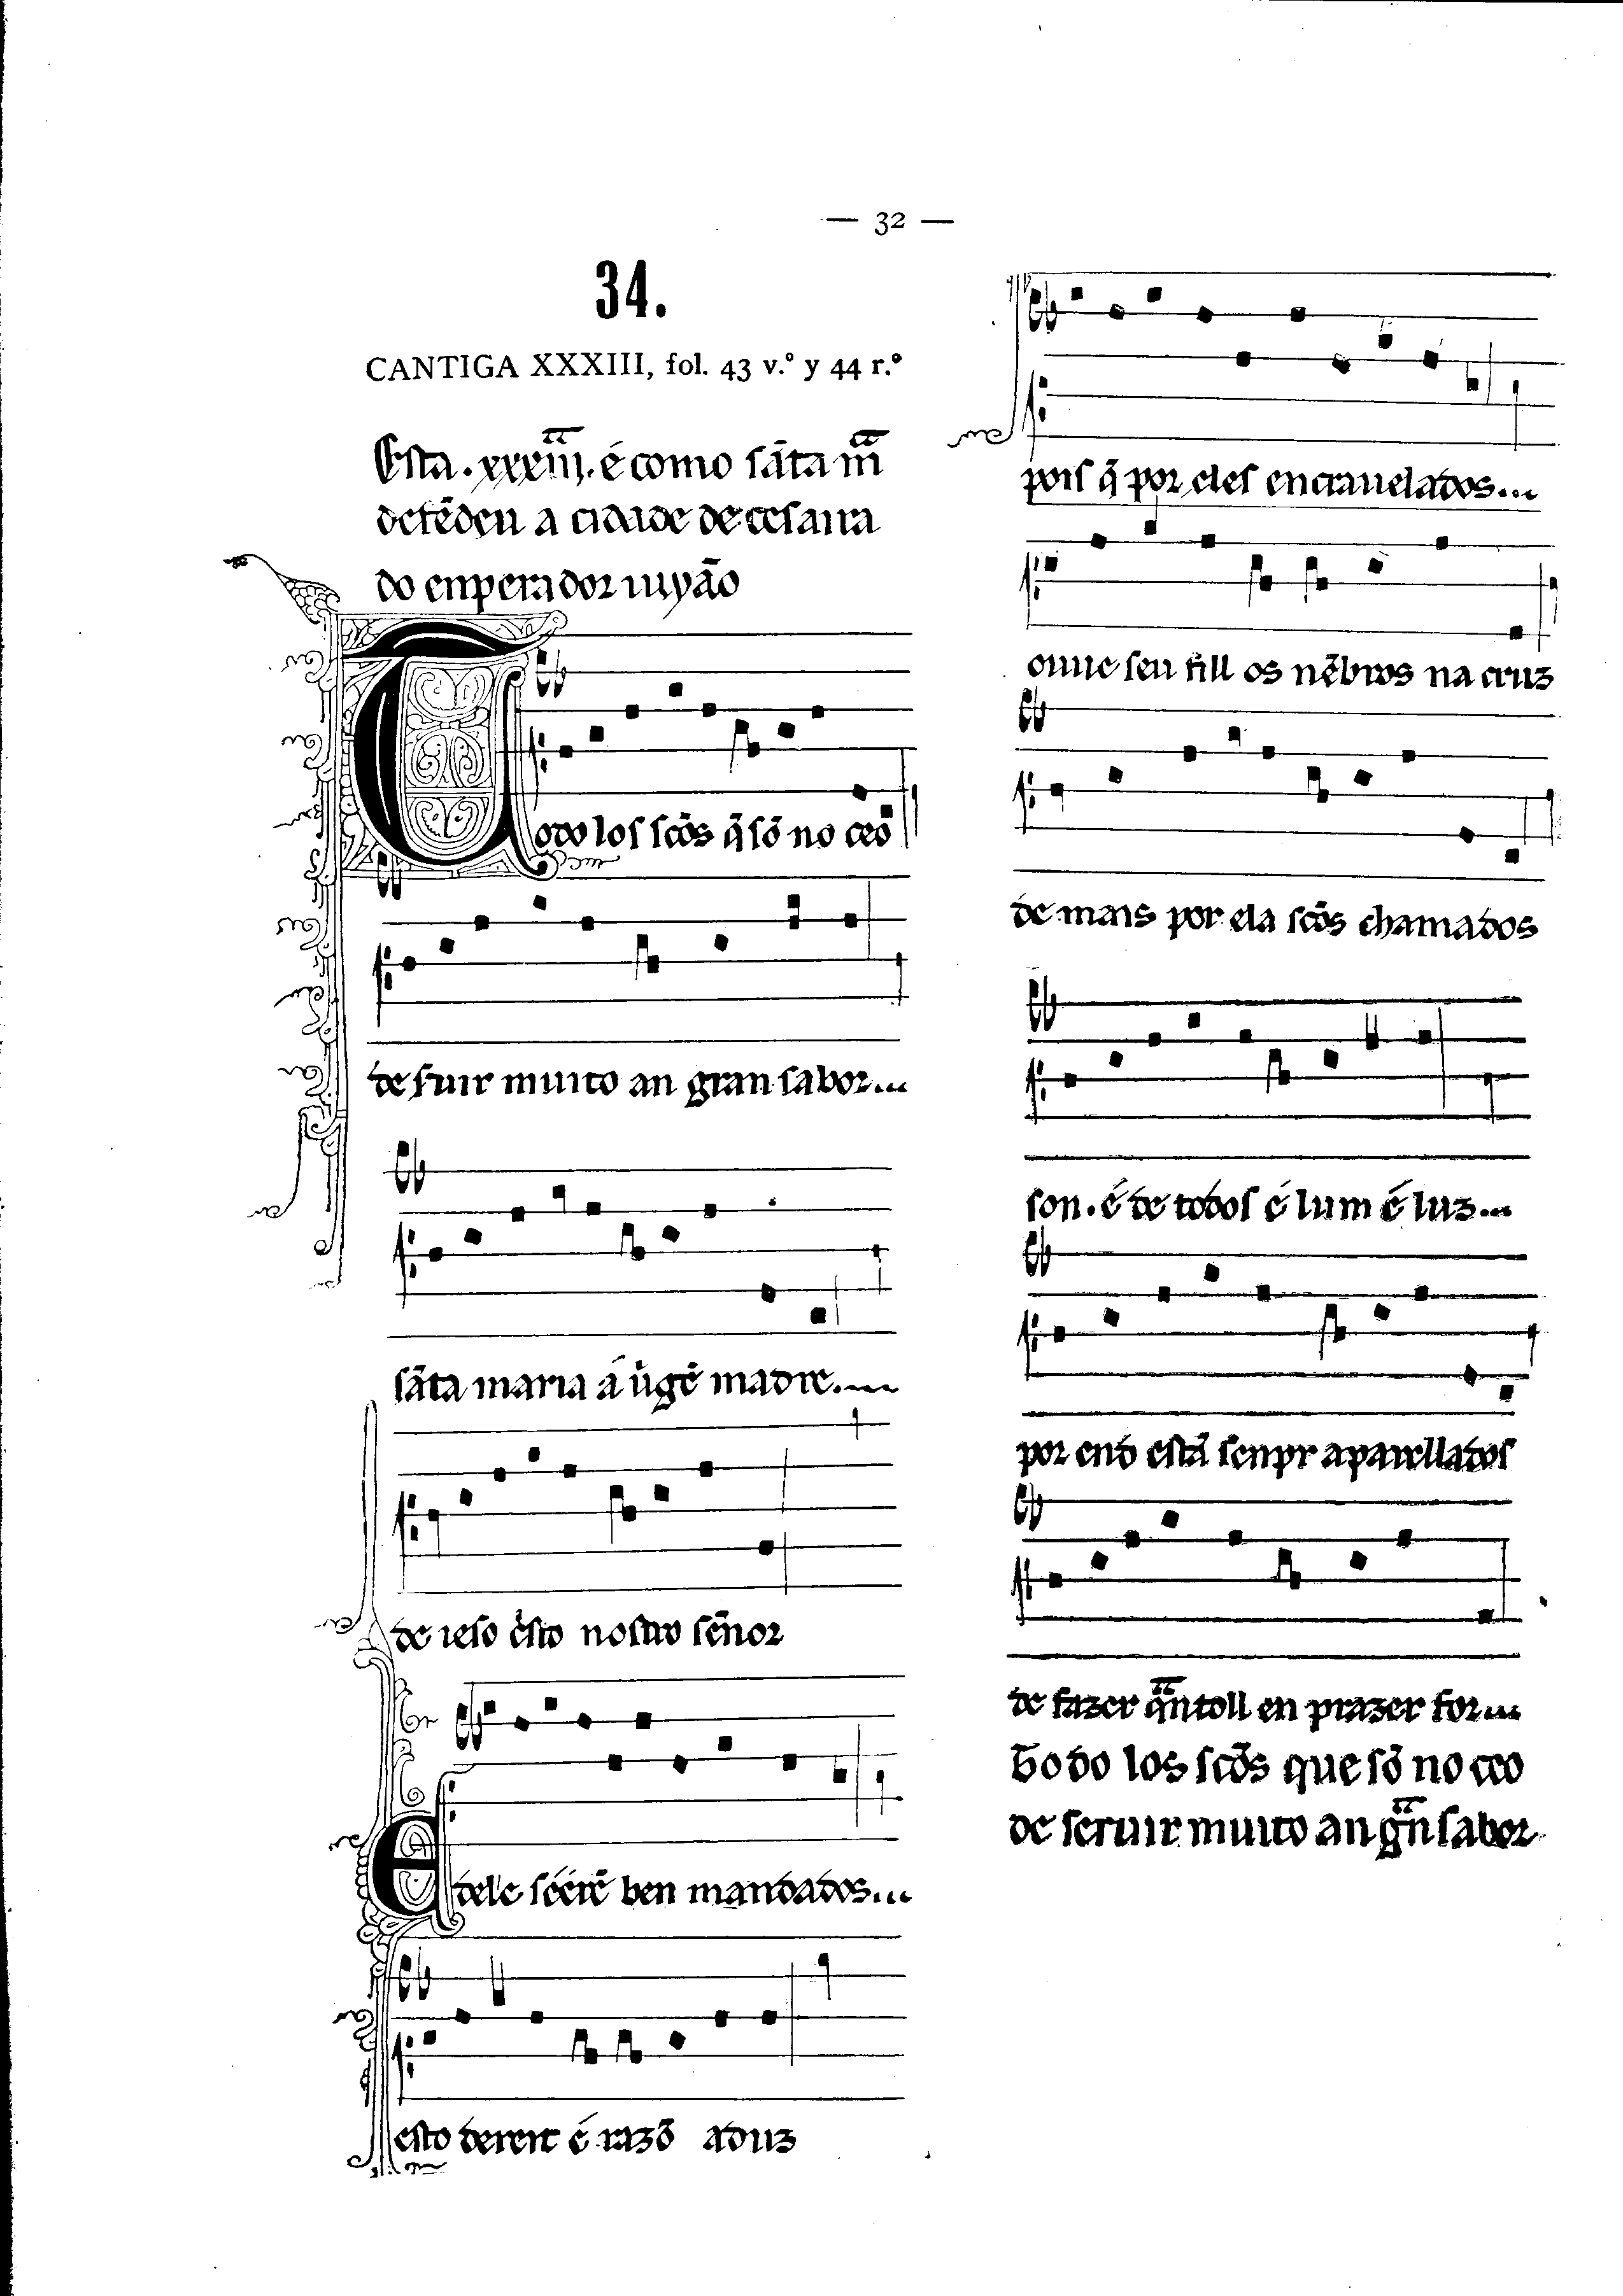 — 32 —
34.
CANTIGA XXXIII, fol. 43 v.º y 44 r.º
Esta .xxxiii. é como sãta m̃
defẽdeu a cidade de cesaira
do enperador iuyão
Todo los scõs q̃ sõ no ceo
de s̃uir muito an gran sabor...
sãta maria a uĩgẽ madre...
de ieso cristo nostro sẽnor
E dele seerẽ ben mandados...
esto dereit é razõ aduz
pois q̃ por eles encrauelados...
ouue seu fill os nẽbros na cruz
de mais por ela scõs chamados
son. é de todos é lum é luz...
por end estã senpr aparellados
de fazer q̃ntoll en prazer for...
Todo los scõs que sõ no ceo
de seruir muito an g̃n sabor